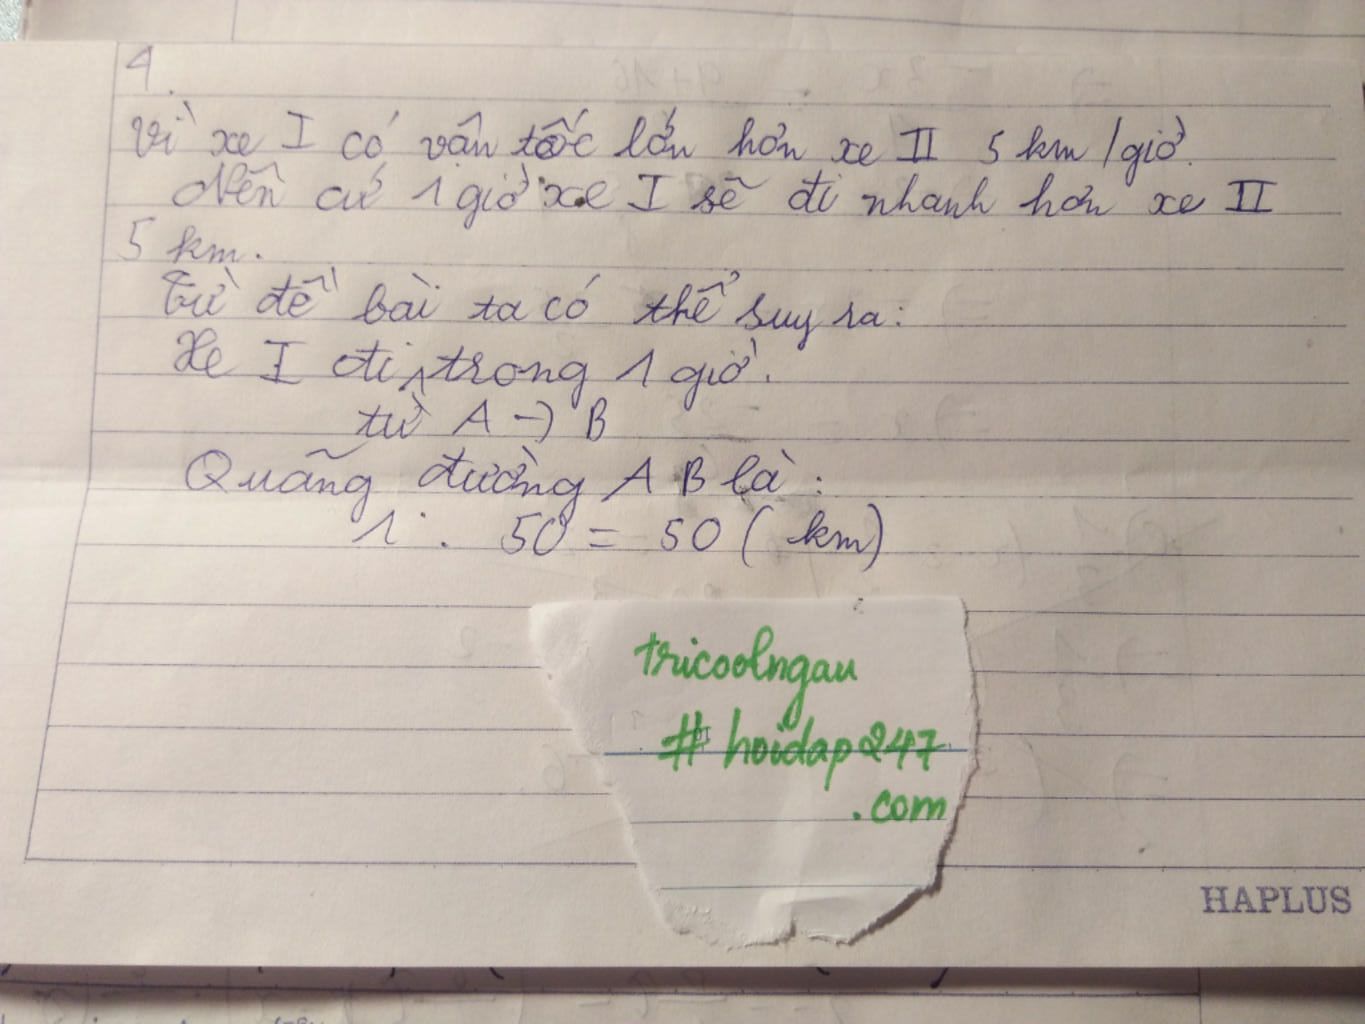 4.
Vì xe I có vận tốc lớn hơn xe II 5 km/giờ.
Nên cứ 1 giờ xe I sẽ đi nhanh hơn xe II
5 km.
Từ đề bài ta có thể suy ra:
Xe I đi trong 1 giờ.
từ A → B
Quãng đường AB là:
1 . 50 = 50 (km)
tricoolngau
# hoidap247
.com
HAPLUS